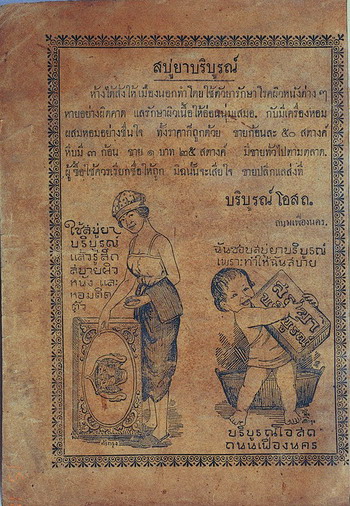 สบู่ยาบริบูรณ์
ห้างได้สั่งให้เมืองนอกทำ โดยใช้ตัวยารักษาโรคผิวหนังต่าง ๆ
หายอย่างผิดคาด แลรักษาผิวเนื้อให้อ่อนหนุ่มเสมอ. กับมีเครื่องหอม
ผสมหอมอย่างชื่นใจ ทั้งราคาก็ถูกด้วย ขายก้อนละ ๕๐ สตางค์
หีบมี ๓ ก้อน ขาย ๑ บาท ๒๕ สตางค์ มีขายทั่วไปตามตลาด.
ผู้ซื้อใช้ควรเรียกชื่อให้ถูก มิฉนั้นจะเสียใจ ขายปลีกแลส่งที่
บริบูรณ์โอสถ.
ถนนเฟื่องนคร.
ใช้สบู่ยา
บริบูรณ์
แล้วรู้สึก
สบายผิว
หนัง และ
หอมติด
ตัว
ฉันชอบสบู่ยาบริบูรณ์
เพราะทำให้ฉันสบาย
สบู่ยา
บริบูรณ์
บริบูรณ์โอสถ
ถนนเฟื่องนคร